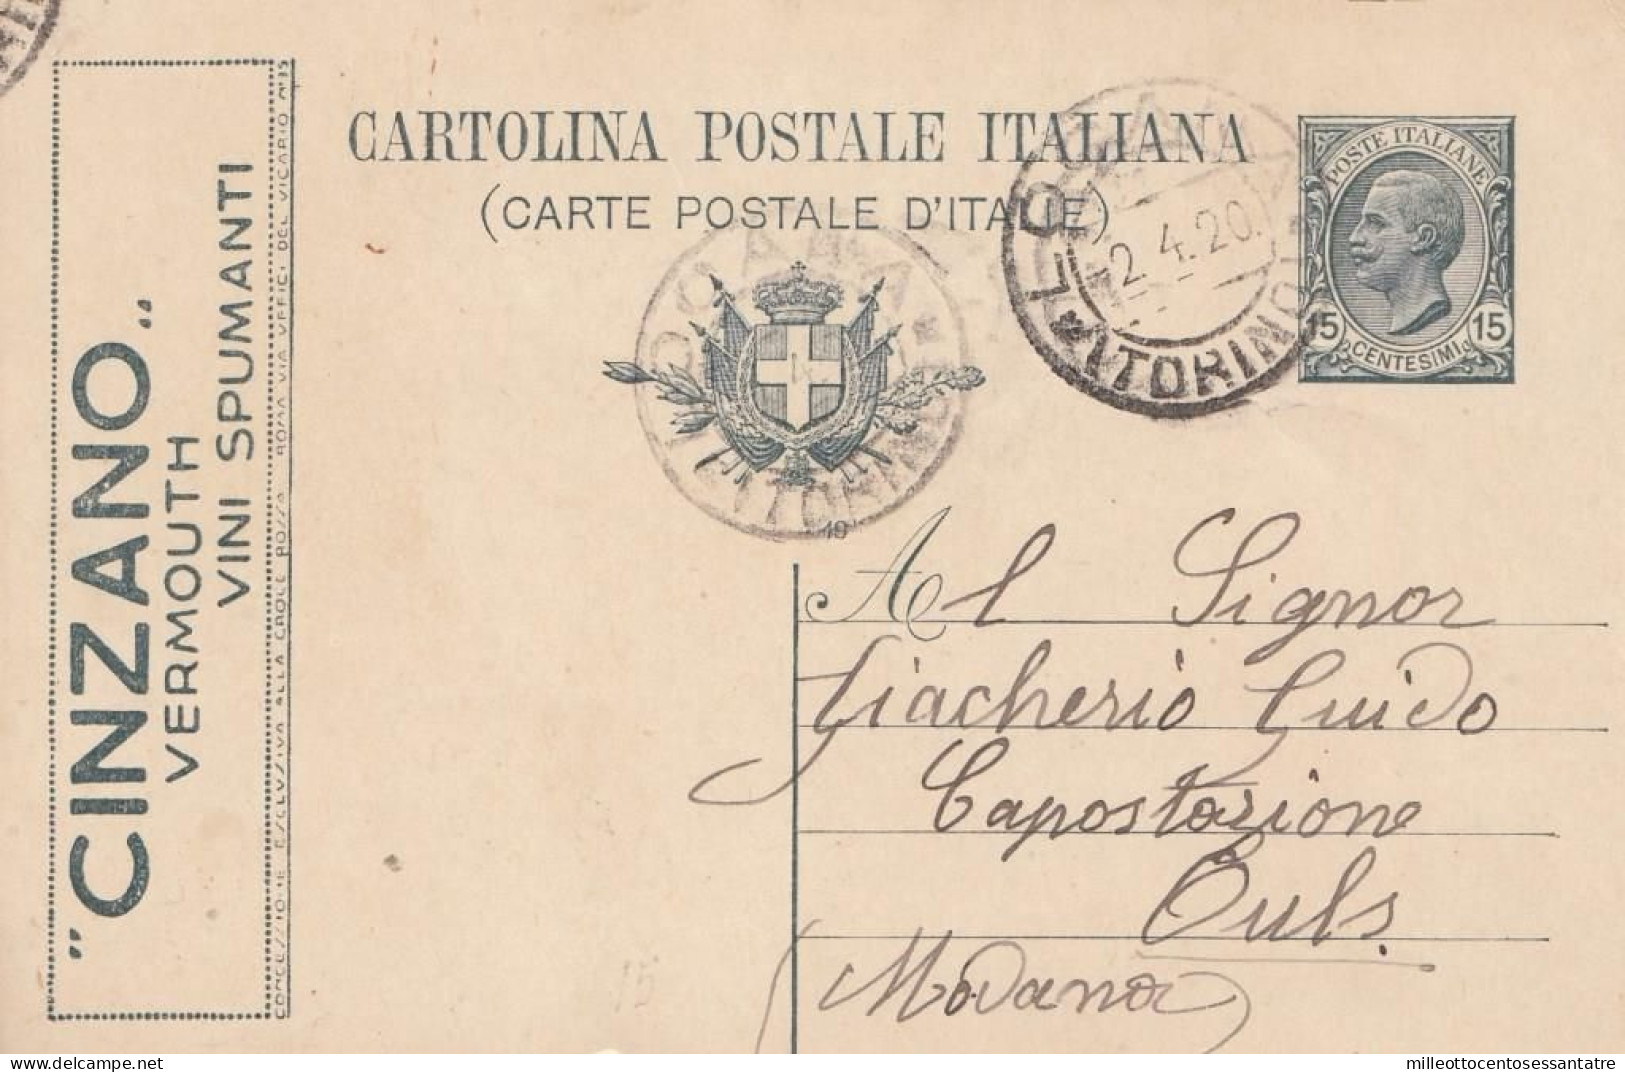 CARTOLINA POSTALE ITALIANA
(CARTE POSTALE D'ITALIE)
"CINZANO"
VERMOUTH
VINI SPUMANTI
CONCESSIONE ESCLUSIVA ALLA CROCE ROSSA ROMA VIA UFFICI DEL VICARIO Nº15
POSTE ITALIANE
15 15
CENTESIMI
2.4.20.
(TORINO)
(TORINO)
19
Al Signor
Giacherio Guido
Capostazione
Oulx
(Modana)
15
milleottocentosessantatre